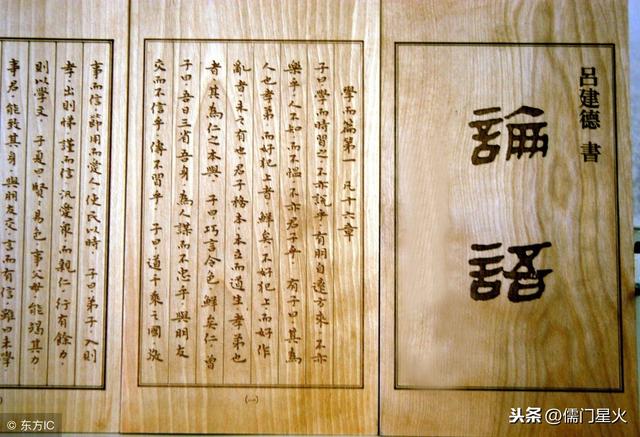 呂建德 書
論語
學而篇第一 凡十六章
子曰學而時習之不亦說乎有朋自遠方來不亦
樂乎人不知而不慍不亦君子乎 有子曰其為
人也孝弟而好犯上者鮮矣不好犯上而好作
亂者未之有也君子務本本立而道生孝弟也
者其為仁之本與 子曰巧言令色鮮矣仁 曾
子曰吾日三省吾身為人謀而不忠乎與朋友
交而不信乎傳不習乎 子曰道千乘之國敬
(一)
事而信節用而愛人使民以時 子曰弟子入則
孝出則悌謹而信汎愛衆而親仁行有餘力
則以學文 子夏曰賢々易色事父母能竭其力
事君能致其身與朋友交言而有信雖曰未學
© 东方IC
头条@儒门星火